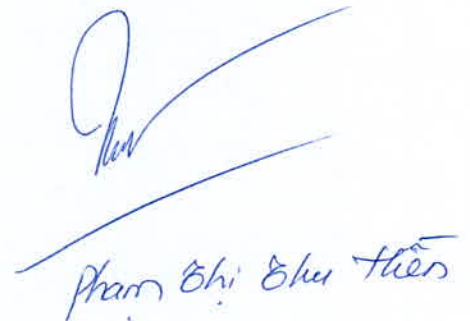 Phạm Thị Thu Hiền